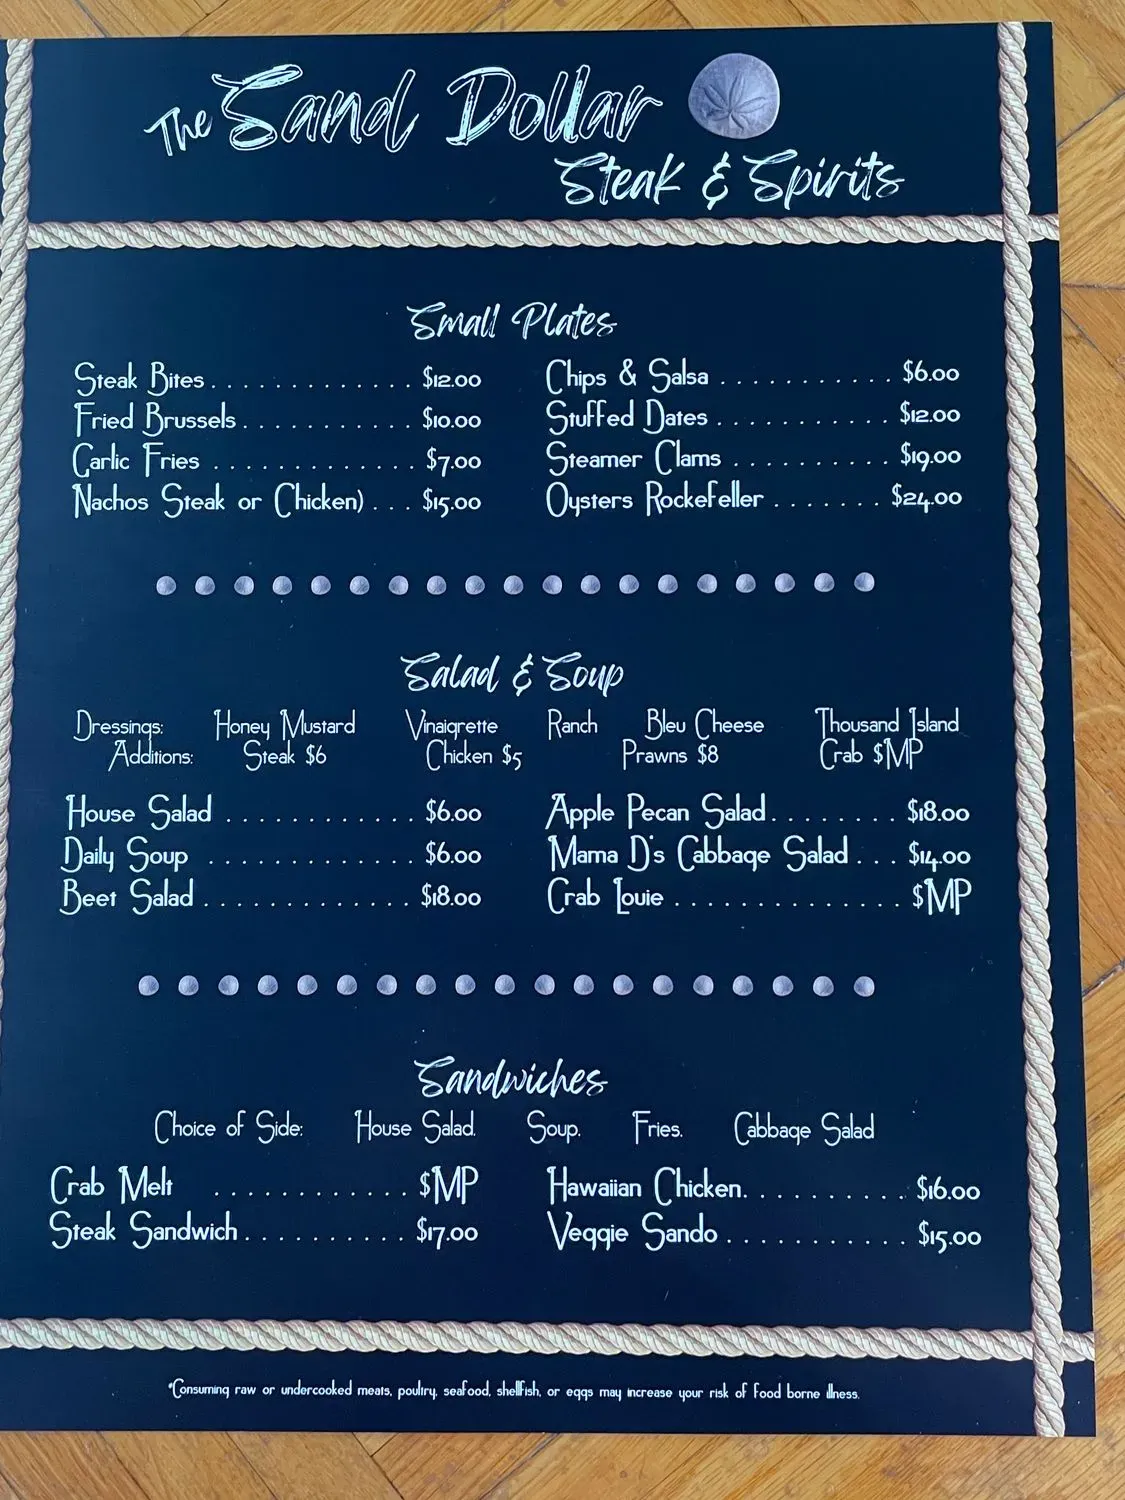 The Sand Dollar
Steak & Spirits
Small Plates
Steak Bites . . . . . . . . . . . . . $12.00
Fried Brussels . . . . . . . . . . . $10.00
Garlic Fries . . . . . . . . . . . . . $7.00
Nachos Steak or Chicken) . . . $15.00
Chips & Salsa . . . . . . . . . . . $6.00
Stuffed Dates . . . . . . . . . . . $12.00
Steamer Clams . . . . . . . . . . $19.00
Oysters Rockefeller . . . . . . . $24.00
Salad & Soup
Dressings: Honey Mustard Vinaigrette Ranch Bleu Cheese Thousand Island
Additions: Steak $6 Chicken $5 Prawns $8 Crab $MP
House Salad . . . . . . . . . . . . $6.00
Daily Soup . . . . . . . . . . . . . $6.00
Beet Salad . . . . . . . . . . . . . $18.00
Apple Pecan Salad . . . . . . . . $18.00
Mama D's Cabbage Salad . . . $14.00
Crab Louie . . . . . . . . . . . . . . $MP
Sandwiches
Choice of Side: House Salad. Soup. Fries. Cabbage Salad
Crab Melt . . . . . . . . . . . . . $MP
Steak Sandwich . . . . . . . . . . . $17.00
Hawaiian Chicken. . . . . . . . . . . $16.00
Veggie Sando . . . . . . . . . . . . $15.00
*Consuming raw or undercooked meats, poultry, seafood, shellfish, or eggs may increase your risk of food borne illness.